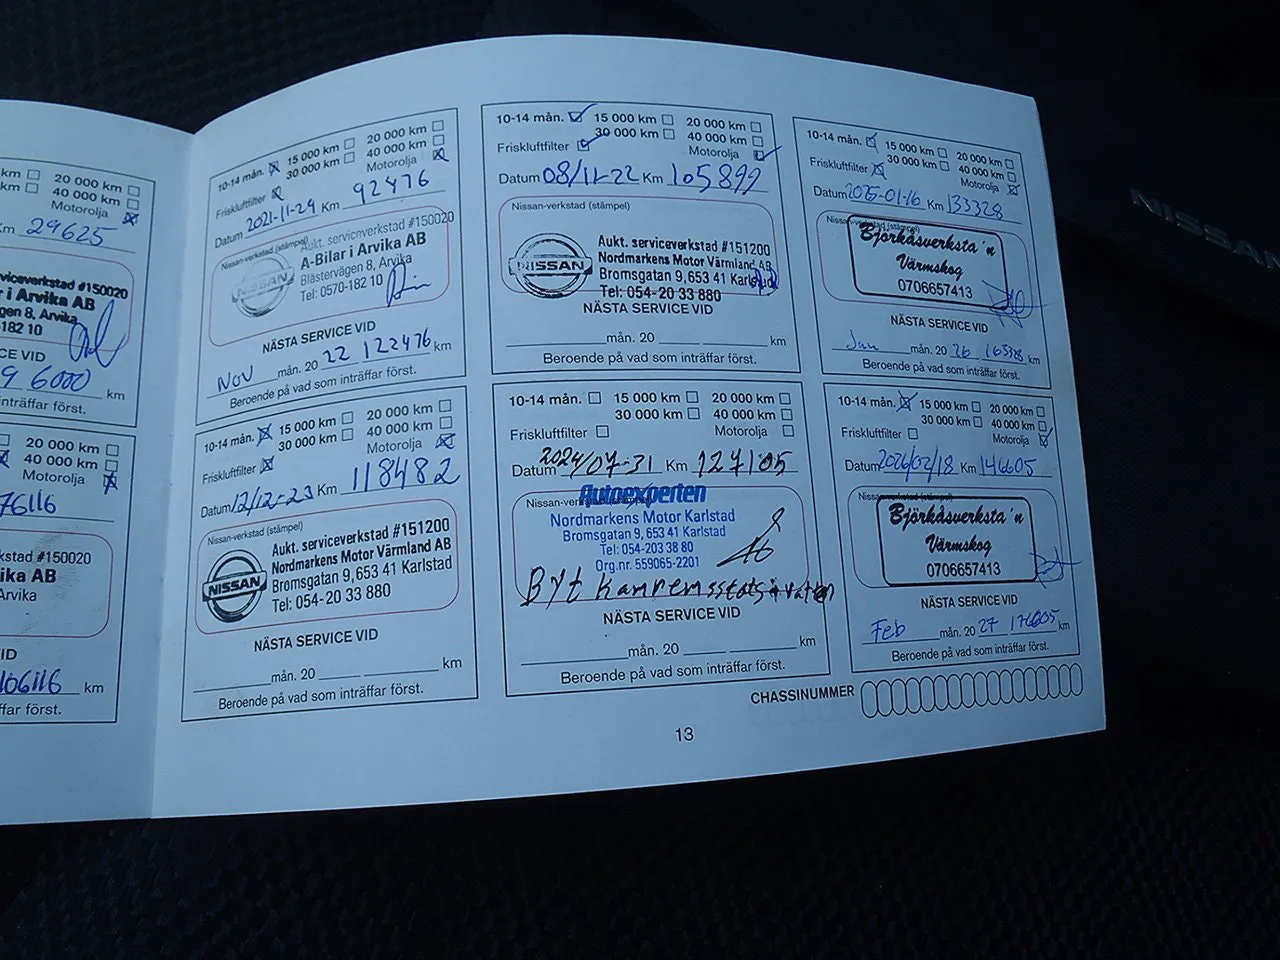 km 20 000 km
km 40 000 km
Motorolja
Km 29625
viceverkstad #150020
r i Arvika AB
gen 8, Arvika
-182 10
SERVICE VID
9 6000 km
inträffar först.
20 000 km
40 000 km
Motorolja
76116
kstad #150020
ika AB
Arvika
VID
106116 km
far först.
10-14 mån. 15 000 km 20 000 km
30 000 km 40 000 km
Friskluftfilter Motorolja
Datum 2021-11-29 Km 92476
Nissan-verkstad (stämpel)
Aukt. serviceverkstad #150020
A-Bilar i Arvika AB
Blästervägen 8, Arvika
Tel: 0570-182 10
NÄSTA SERVICE VID
Nov mån. 20 22 122476 km
Beroende på vad som inträffar först.
10-14 mån. 15 000 km 20 000 km
30 000 km 40 000 km
Friskluftfilter Motorolja
Datum 12/12-23 Km 118482
Nissan-verkstad (stämpel)
NISSAN
Aukt. serviceverkstad #151200
Nordmarkens Motor Värmland AB
Bromsgatan 9, 653 41 Karlstad
Tel: 054-20 33 880
NÄSTA SERVICE VID
mån. 20 km
Beroende på vad som inträffar först.
10-14 mån. 15 000 km 20 000 km
30 000 km 40 000 km
Friskluftfilter Motorolja
Datum 08/11-22 Km 105899
Nissan-verkstad (stämpel)
NISSAN
Aukt. serviceverkstad #151200
Nordmarkens Motor Värmland AB
Bromsgatan 9, 653 41 Karlstad
Tel: 054-20 33 880
NÄSTA SERVICE VID
mån. 20 km
Beroende på vad som inträffar först.
10-14 mån. 15 000 km 20 000 km
30 000 km 40 000 km
Friskluftfilter Motorolja
Datum 2024/07-31 Km 127105
Nissan-verkstad (stämpel)
Autoexperten
Nordmarkens Motor Karlstad
Bromsgatan 9, 653 41 Karlstad
Tel: 054-203 38 80
Org.nr. 559065-2201
Byt Kamremssats + vatten
NÄSTA SERVICE VID
mån. 20 km
Beroende på vad som inträffar först.
10-14 mån. 15 000 km 20 000 km
30 000 km 40 000 km
Friskluftfilter Motorolja
Datum 2025-01-16 Km 133328
Nissan-verkstad (stämpel)
Björkåsverksta´n
Värmskog
0706657413
NÄSTA SERVICE VID
Jan mån. 20 26 165328 km
Beroende på vad som inträffar först.
10-14 mån. 15 000 km 20 000 km
30 000 km 40 000 km
Friskluftfilter Motorolja
Datum 2026/02/18 Km 146605
Nissan-verkstad (stämpel)
Björkåsverksta´n
Värmskog
0706657413
NÄSTA SERVICE VID
Feb mån. 20 27 176605 km
Beroende på vad som inträffar först.
CHASSINUMMER
13
NISSAN